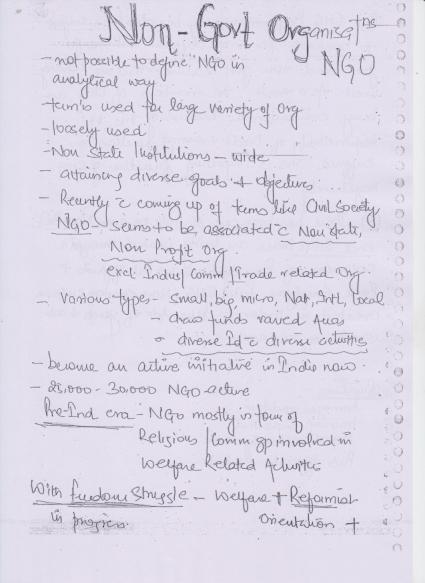 Non-Govt Organisatns
NGO
- not possible to define NGO in
analytical way
- term is used for large variety of Org
- loosely used
- Non State Institutions - wide
- attaining diverse goals + objectives
- Recently c̄ coming up of terms like Civil Society
NGO - seems to be associated c̄ Non State,
Non Profit Org.
excl. Indus/Comm/Trade related Org.
- Various types - small, big, micro, Nat, Intl, local
- draw funds varied
diverse Id c̄ diverse activities
- become an active initiative in India now.
- 25,000 - 30,000 NGO active
Pre-Ind era - NGO mostly in form of
Religious/Comm gp involved in
Welfare Related Activities
With freedom Struggle - Welfare + Reformist
in progress. Orientation +